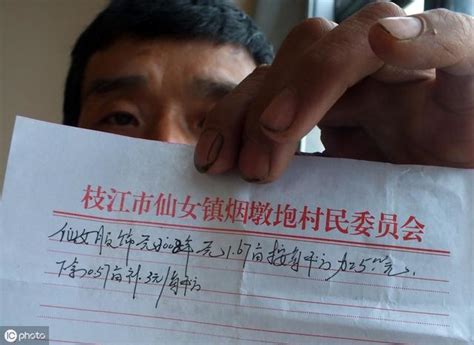 枝江市仙女镇烟墩垉村民委员会
仙女服饰 2008年 1.67亩按每平方加5.00元.
下余0.57亩补3元/每平方
iCphoto